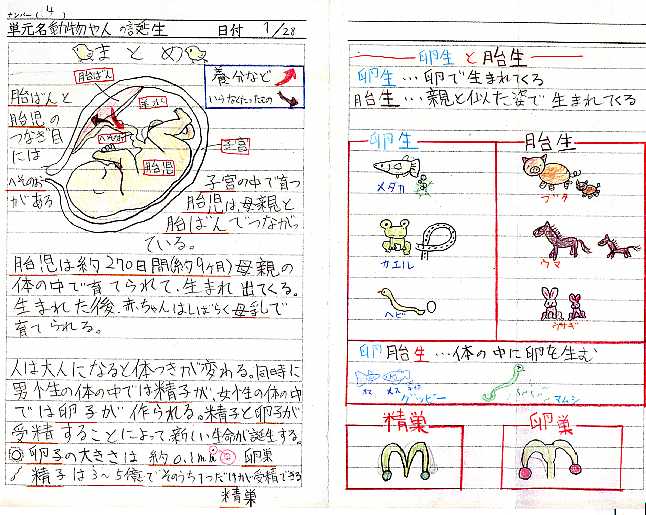 ナンバー(4)
単元名 動物や人の誕生 日付 1/28
まとめ
養分など
いらなくなったもの
胎ばん
羊水
へそのお
胎児
子宮
胎ばんと
胎児の
つなぎ目
には
へそのお
がある
子宮の中で育つ
胎児は、母親と
胎ばんでつながっ
ている。
胎児は約270日間(約9ヶ月)母親の
体の中で育てられて、生まれ出てくる。
生まれた後、赤ちゃんはしばらく母乳で
育てられる。
人は大人になると体つきが変わる。同時に
男個生の体の中では精子が、女個生の体の中
では卵子が作られる。精子と卵子が
受精することによって、新しい生命が誕生する。
卵子の大きさは約0.1mm 卵巣
精子は3~5億でそのうち1つだけが受精できる
精巣
卵生と胎生
卵生…卵で生まれてくる
胎生…親と似た姿で生まれてくる
卵生 胎生
メダカ ブタ
カエル ウマ
ヘビ ウサギ
卵胎生…体の中に卵を生む
オス メス グッピー マムシ
精巣 卵巣